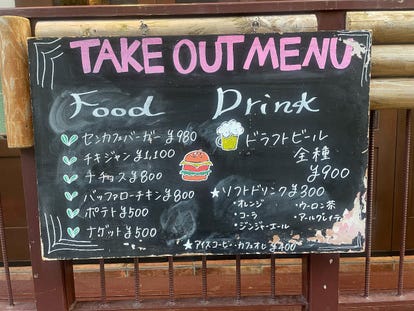 TAKE OUT MENU
Food
センカフェバーガー ¥980
チキジャン ¥1,100
ナチョス ¥800
バッファローチキン ¥800
ポテト ¥500
ナゲット ¥500
Drink
ドラフトビール
全種
¥900
★ソフトドリンク ¥300
・オレンジ
・ウーロン茶
・コーラ
・ジンジャーエール
★アイスコーヒー・カフェオレ ¥400